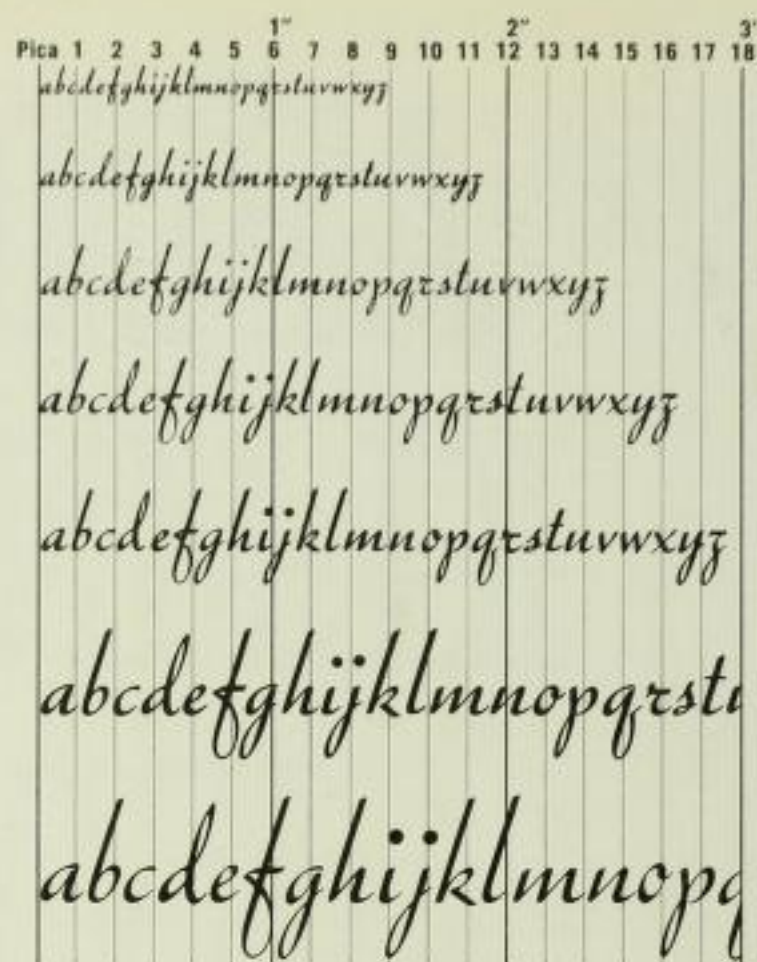 1" 2" 3"
Pica 1 2 3 4 5 6 7 8 9 10 11 12 13 14 15 16 17 18
abcdefghijklmnopqrstuvwxyz
abcdefghijklmnopqrstuvwxyz
abcdefghijklmnopqrstuvwxyz
abcdefghijklmnopqrstuvwxyz
abcdefghijklmnopqrstuvwxyz
abcdefghijklmnopqrstu
abcdefghijklmnopq